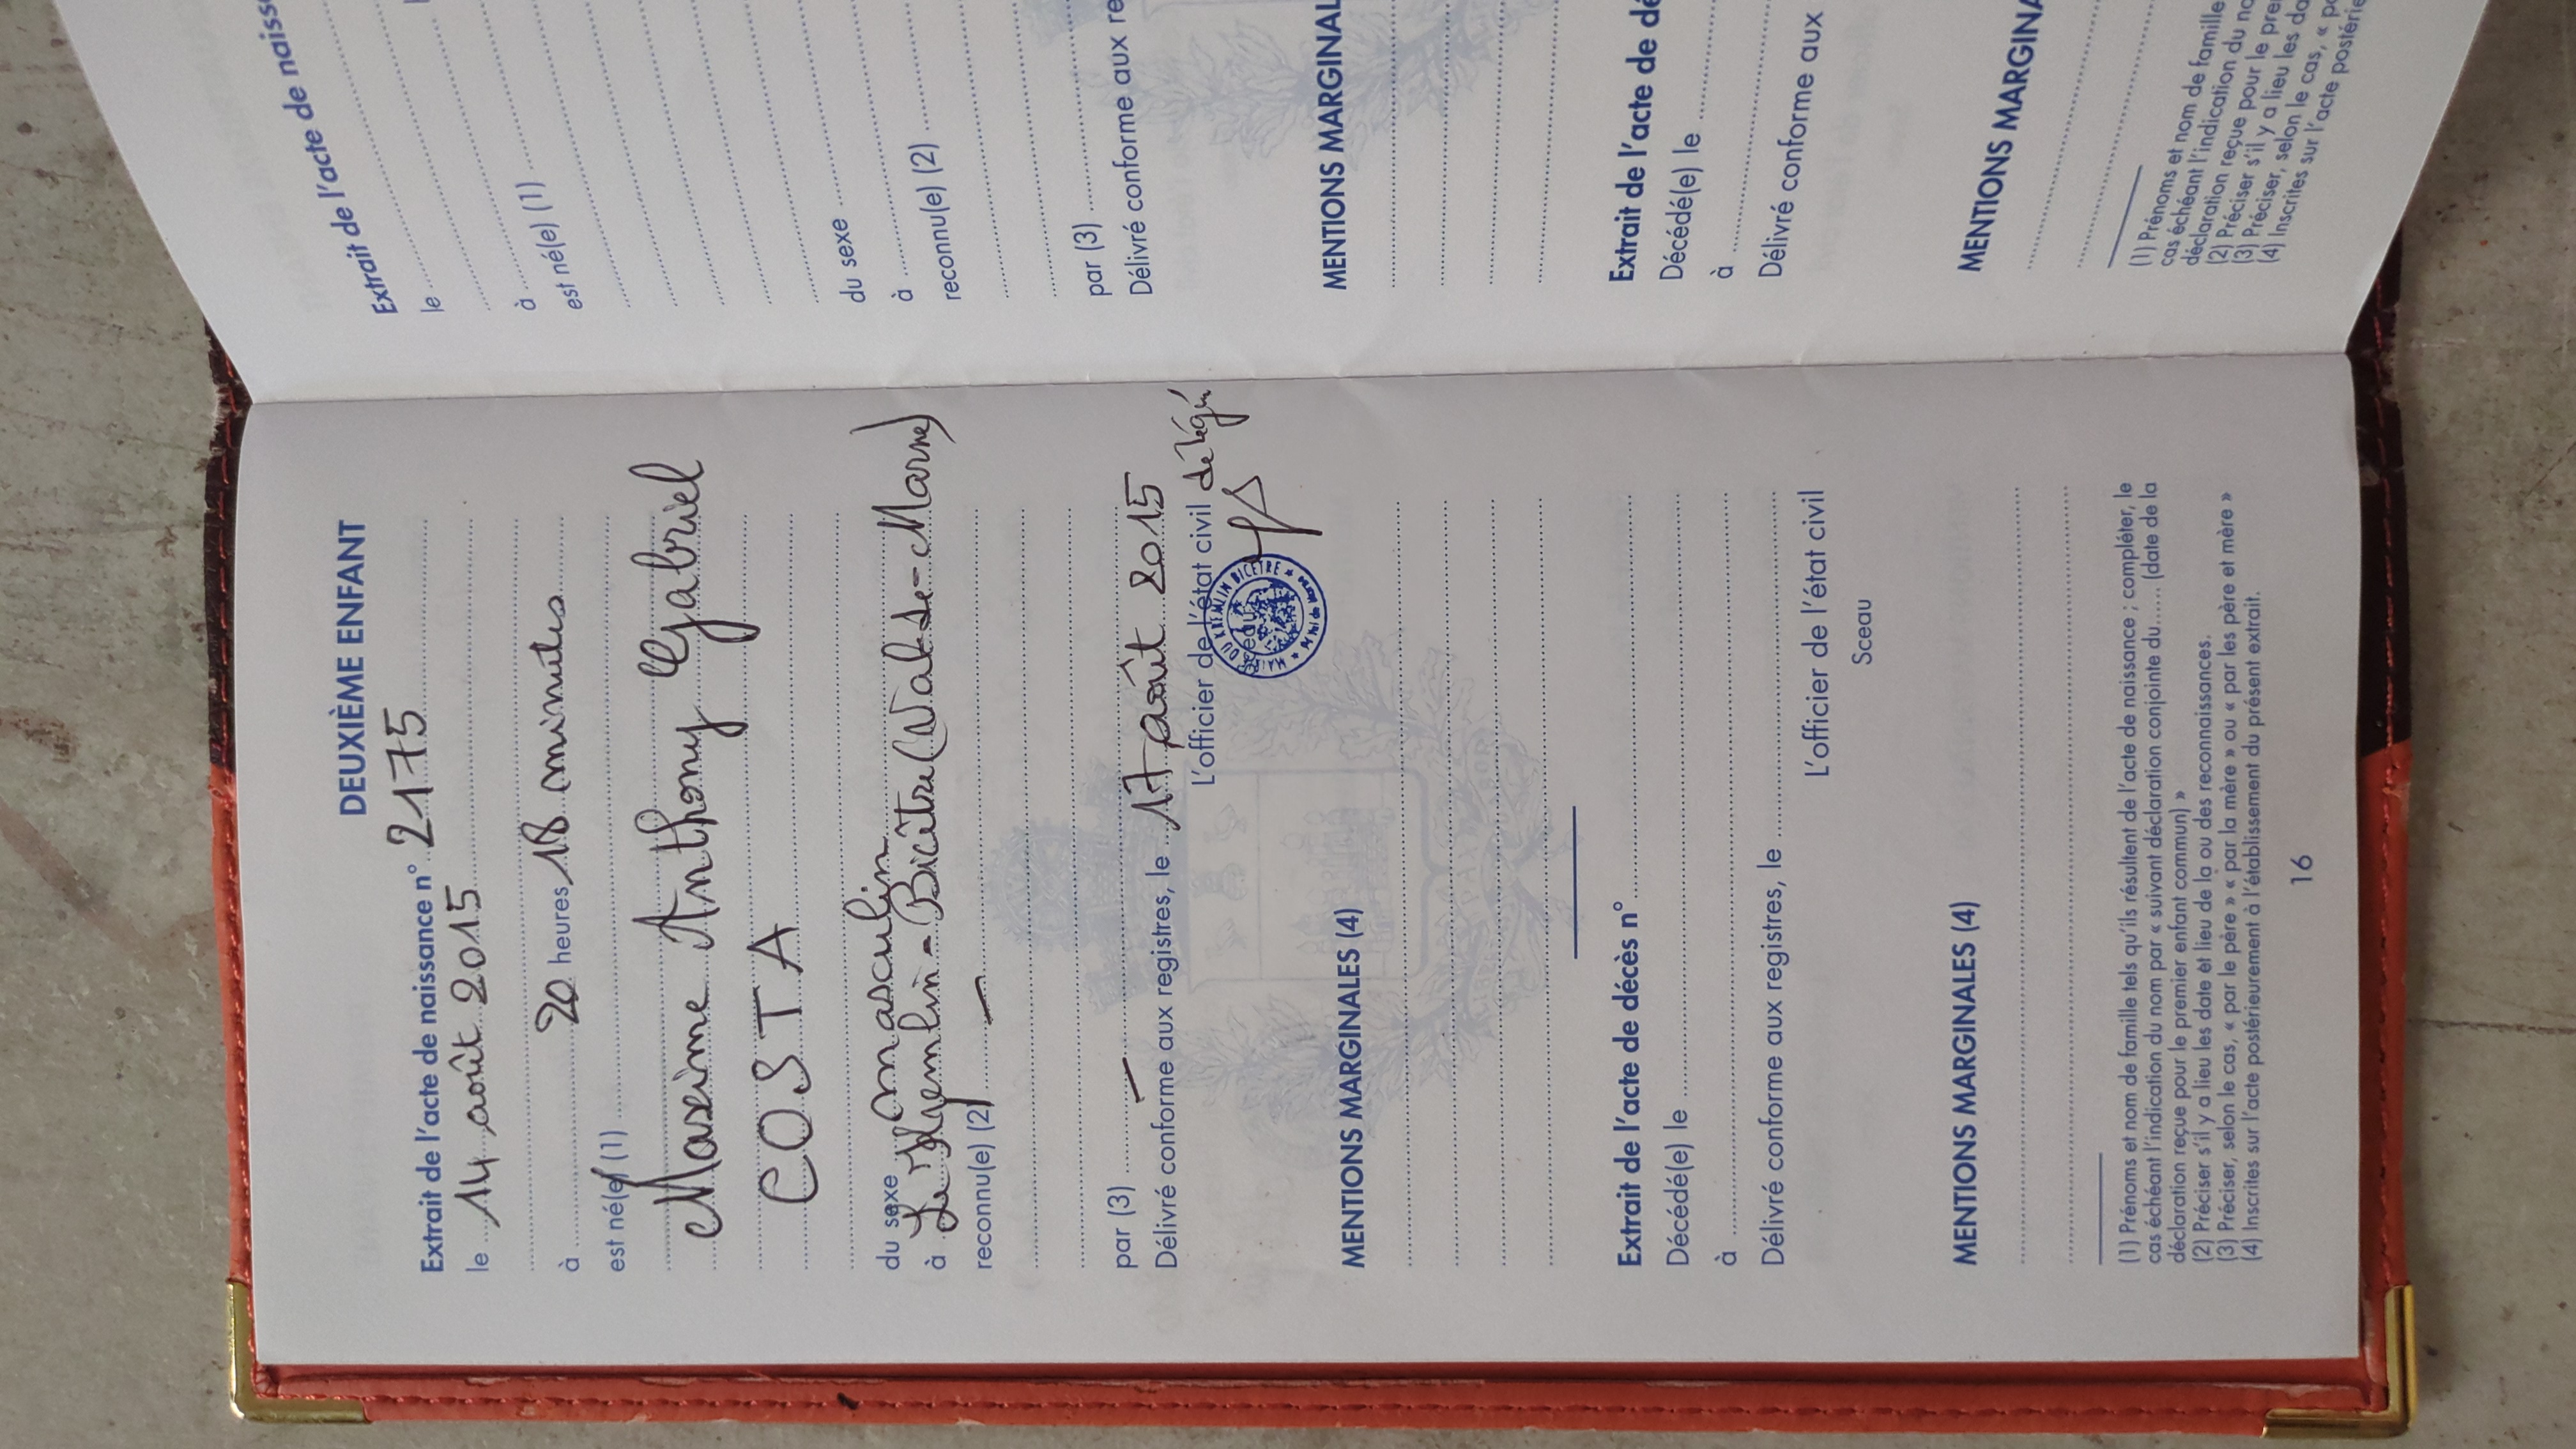 DEUXIÈME ENFANT
Extrait de l'acte de naissance n° 2175
le 14 août 2015
à 20 heures 18 minutes
est né(e) (1)
Maxime Anthony Gabriel
COSTA
du sexe masculin
à Le Kremlin-Bicêtre (Val-de-Marne)
reconnu(e) (2)
par (3)
Délivré conforme aux registres, le 17 août 2015
L'officier de l'état civil délégué
Sceau
MAIRIE DU KREMLIN BICETRE
MENTIONS MARGINALES (4)
Extrait de l'acte de décès n°
Décédé(e) le
à
Délivré conforme aux registres, le
L'officier de l'état civil
Sceau
MENTIONS MARGINALES (4)
(1) Prénoms et nom de famille tels qu'ils résultent de l'acte de naissance ; compléter, le
cas échéant l'indication du nom par « suivant déclaration conjointe du...... (date de la
déclaration reçue pour le premier enfant commun) »
(2) Préciser s'il y a lieu les date et lieu de la ou des reconnaissances.
(3) Préciser, selon le cas, « par le père » « par la mère » ou « par les père et mère »
(4) Inscrites sur l'acte postérieurement à l'établissement du présent extrait.
16
Extrait de l'acte de naiss
le
à
est né(e) (1)
du sexe
à
reconnu(e) (2)
par (3)
Délivré conforme aux re
MENTIONS MARGINAL
Extrait de l'acte de dé
Décédé(e) le
à
Délivré conforme aux
MENTIONS MARGINA
(1) Prénoms et nom de famille
cas échéant l'indication du no
déclaration reçue pour le pren
(2) Préciser s'il y a lieu les da
(3) Préciser, selon le cas, « pa
(4) Inscrites sur l'acte postérie